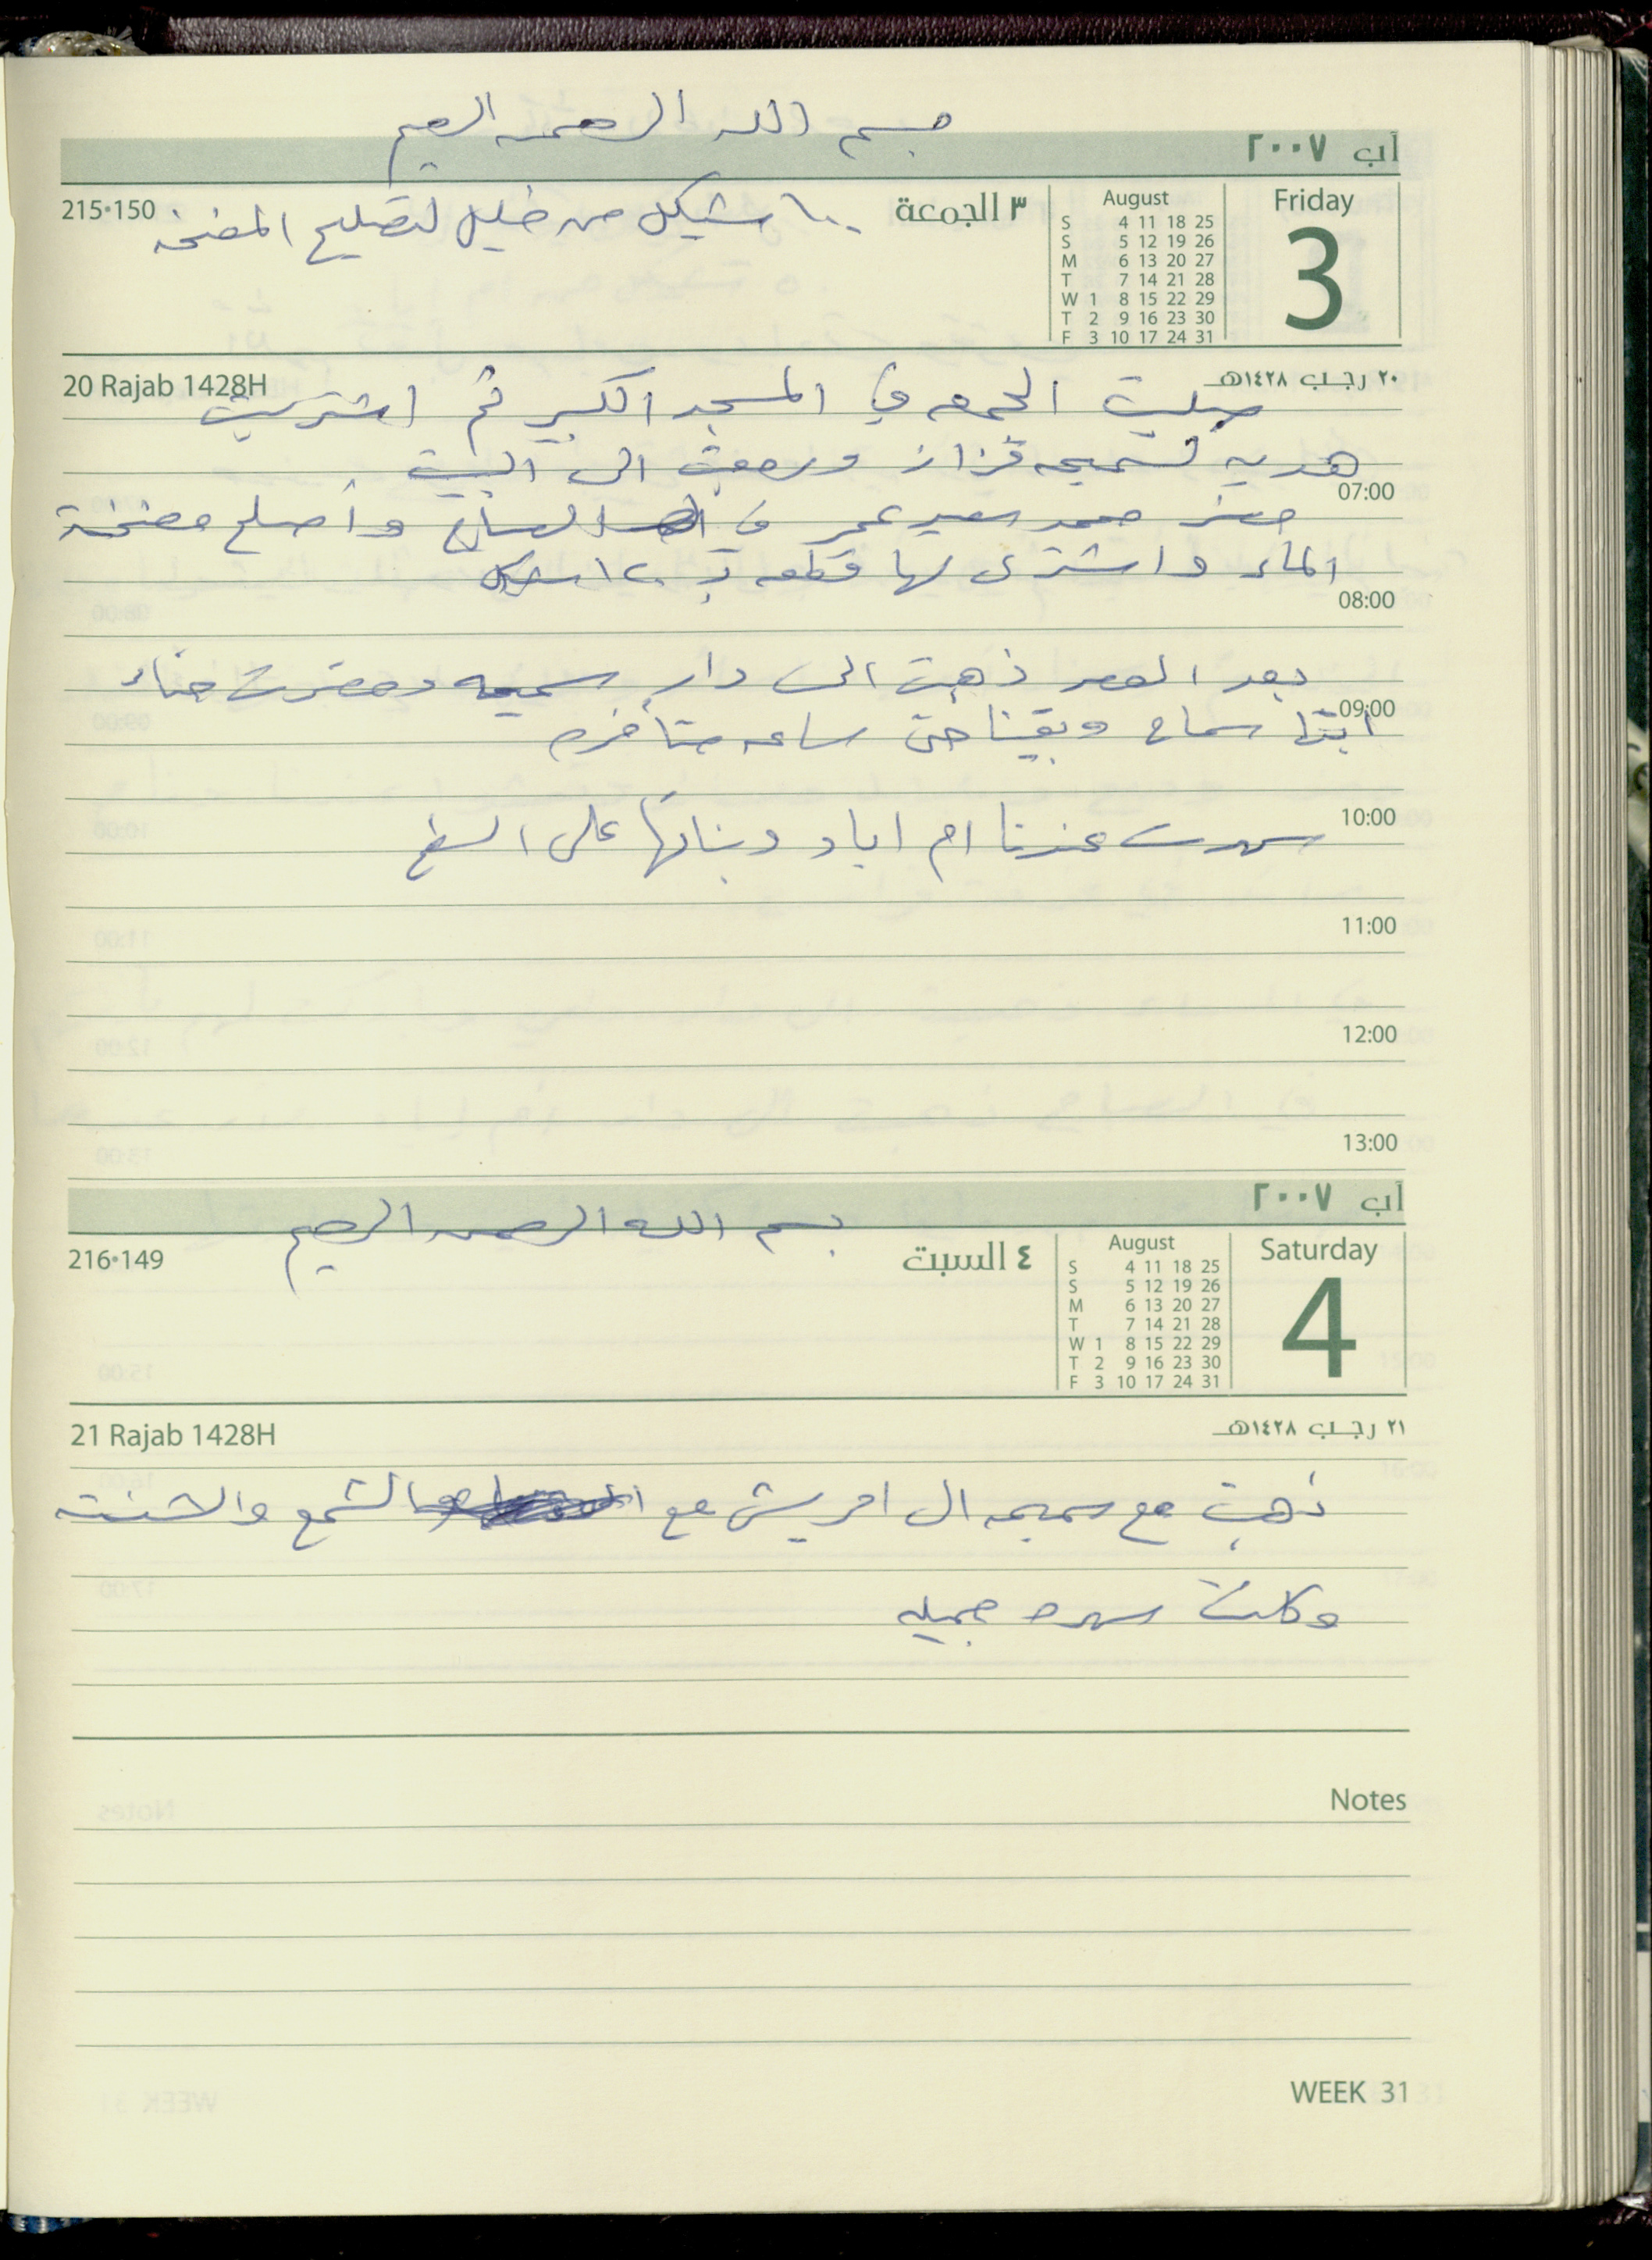 بسم الله الرحمن الرحيم
آب ٢٠٠٧
215•150
١٠٠ شيكل من خليل لتصليح المضخه
٣ الجمعة
August
S 4 11 18 25
S 5 12 19 26
M 6 13 20 27
T 7 14 21 28
W 1 8 15 22 29
T 2 9 16 23 30
F 3 10 17 24 31
Friday
3
20 Rajab 1428H
٢٠ رجب ١٤٢٨هـ
صليت الجمعه في المسجد الكبير ثم اشتريت
هديه لسميحه قزاز ورجعت الى البيت
07:00
حضر محمد سعيد عمر في وأصلح مضخة
الماء واشترى لها قطعه بـ ١٢٠ شيكل
08:00
بعد العصر ذهبت الى دار سميحه وحضرت هناء
09:00
ابنة سماح وبقينا حتى ساعه متأخره
10:00
سهرت عندنا ام اياد وبناتها على السطح
11:00
12:00
13:00
آب ٢٠٠٧
بسم الله الرحمن الرحيم
216•149
٤ السبت
August
S 4 11 18 25
S 5 12 19 26
M 6 13 20 27
T 7 14 21 28
W 1 8 15 22 29
T 2 9 16 23 30
F 3 10 17 24 31
Saturday
4
21 Rajab 1428H
٢١ رجب ١٤٢٨هـ
ذهبت مع سميحه ال مع الشمع
وكانت سهره جميله
Notes
WEEK 31